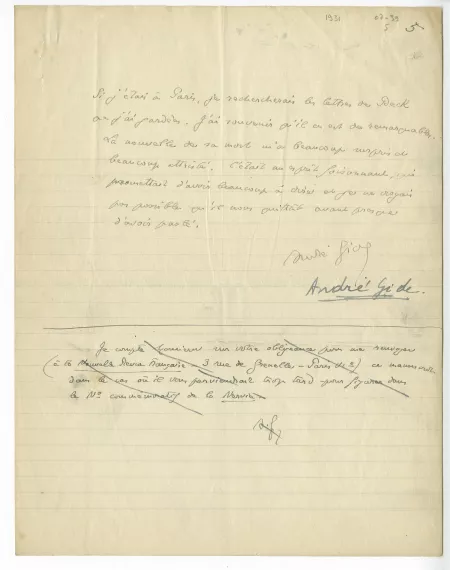 1931
5
5
Si j'étais à Paris, je rechercherais les lettres de
que j'ai gardées. J'ai souvenir qu'il en est de remarquables.
La nouvelle de sa mort m'a beaucoup surpris et
beaucoup attristé. C'était un esprit foisonnant, qui
promettait d'avoir beaucoup à dire et je ne croyais
pas possible qu'il nous quittât avant presque
d'avoir parlé.
André Gide
André Gide.
Je compte sur votre obligeance pour me renvoyer
(à la Nouvelle Revue Française 3 rue de Grenelle - Paris) ce manuscrit
dans le cas où il vous parviendrait trop tard pour figurer dans
le No commémoratif de la